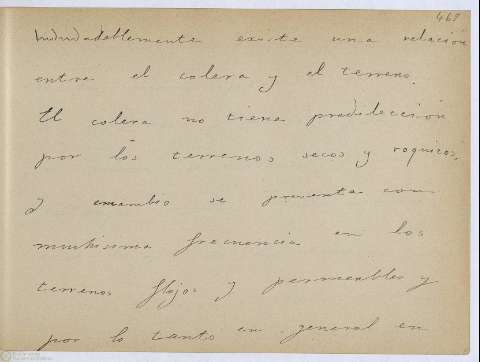 469
Indudablemente existe una relación
entre el colera y el terreno.
El colera no tiene predileccion
por los terrenos secos y roquizos,
y encambio se presenta con
muchisima frecuencia en los
terrenos flojos y permeables y
por lo tanto en general en